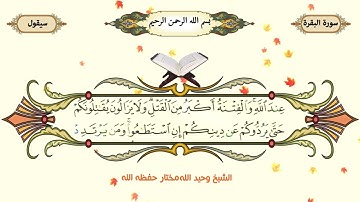 سورة البقرة
بسم الله الرحمن الرحيم
سيقول
عِندَ اللَّهِ وَالْفِتْنَةُ أَكْبَرُ مِنَ الْقَتْلِ وَلَا يَزَالُونَ يُقَاتِلُونَكُمْ
حَتَّىٰ يَرُدُّوكُمْ عَن دِينِكُمْ إِنِ اسْتَطَاعُوا وَمَن يَرْتَدِدْ
الشيخ وحيد الله مختار حفظه الله